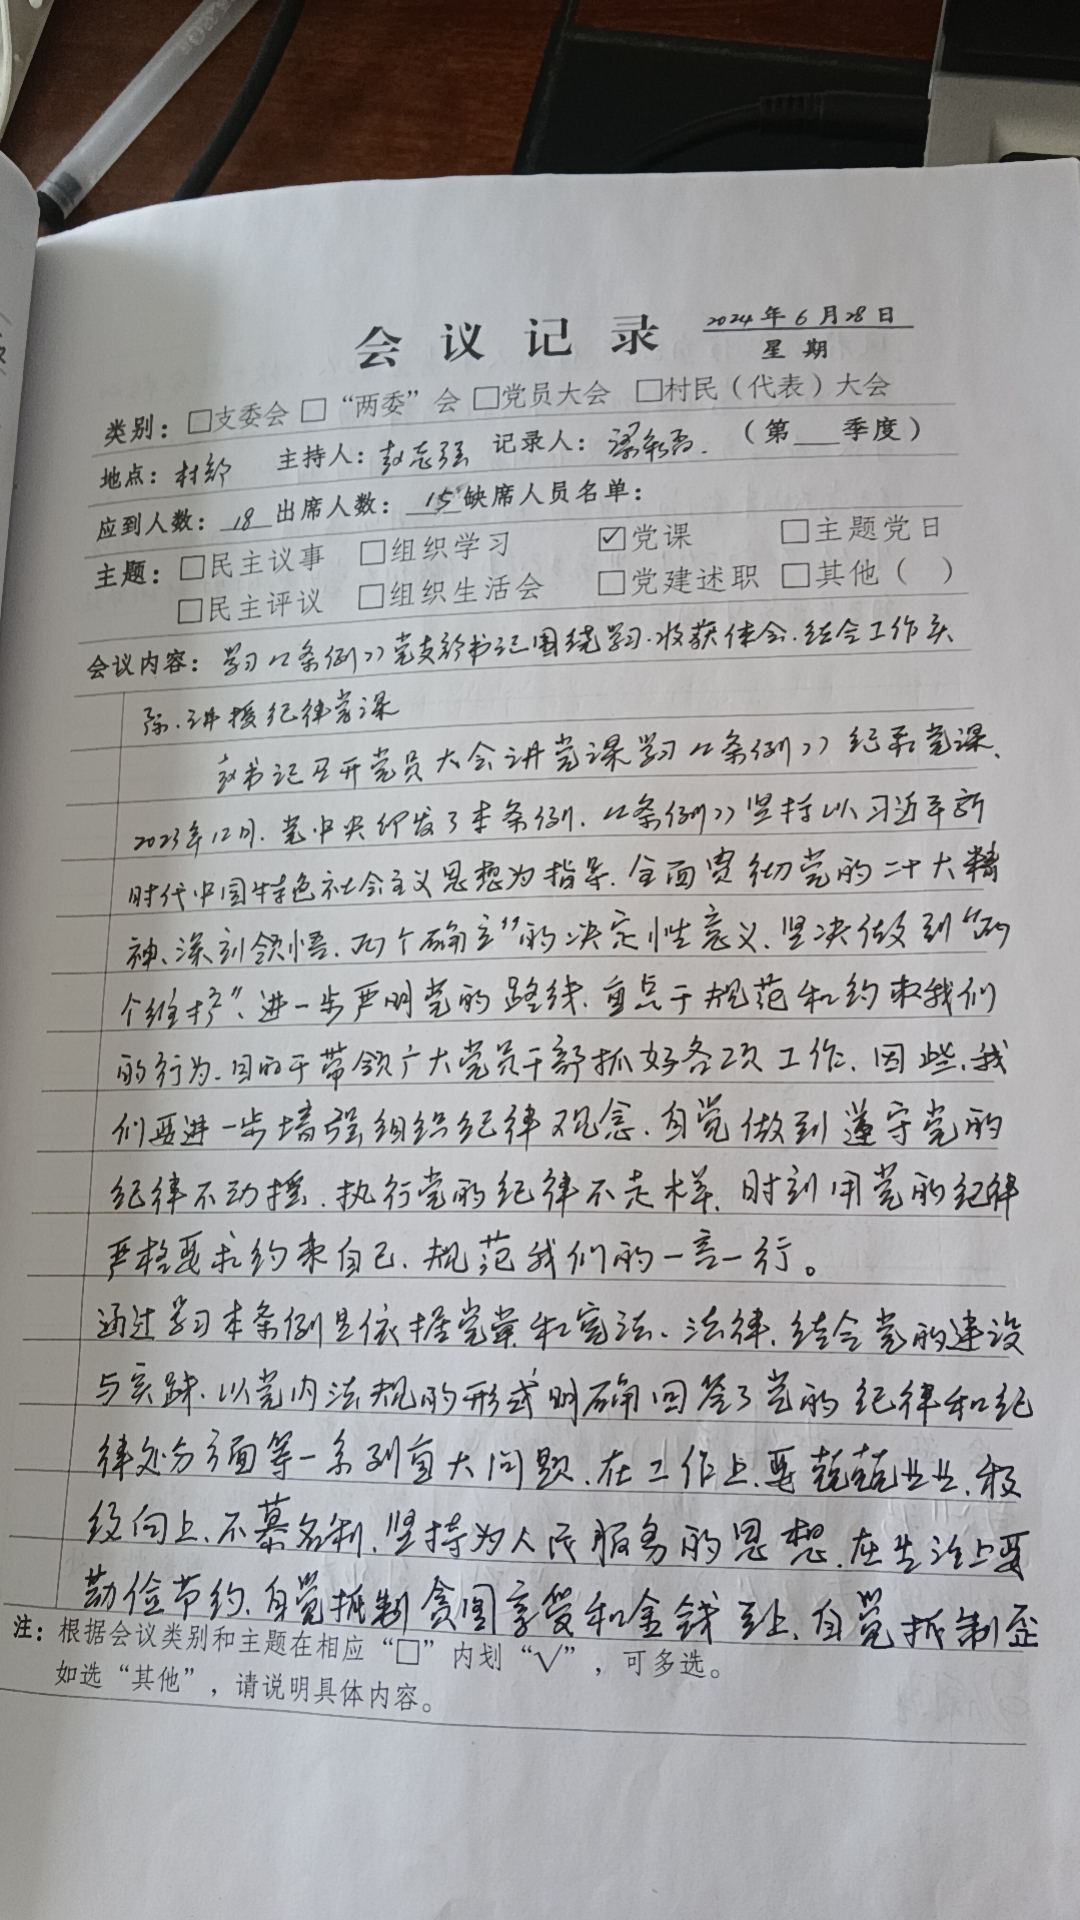 会议记录 2024年6月28日
星期
类别：□支委会 □“两委”会 □党员大会 □村民（代表）大会
地点：村部 主持人：赵志强 记录人：梁 （第 季度）
应到人数：18 出席人数：15 缺席人员名单：
主题：□民主议事 □组织学习 ☑党课 □主题党日
□民主评议 □组织生活会 □党建述职 □其他（ ）
会议内容：学习《条例》党支部书记围绕学习.收获体会.结合工作实
际.讲授纪律党课
赵书记召开党员大会讲党课学习《条例》纪和党课、
2023年12月.党中央印发了本条例.《条例》坚持以习近平新
时代中国特色社会主义思想为指导.全面贯彻党的二十大精
神、深刻领悟.两个确立”的决定性意义、坚决做到“两
个维护”、进一步严明党的路线.重点于规范和约束我们
的行为.目的于带领广大党员干部抓好各项工作.因些.我
们要进一步增强组织纪律观念.自觉做到遵守党的
纪律不动摇.执行党的纪律不走样.时刻用党的纪律
严格要求约束自己.规范我们的一言一行。
通过学习本条例是依据党章和宪法、法律.结合党的建设
与实践.以党内法规的形式明确回答了党的纪律和纪
律处分方面等一系列重大问题.在工作上.要兢兢业业.积
级向上.不慕名利.坚持为人民服务的思想.在生活上要
勤俭节约.自觉抵制贪图享受和金钱至上.自觉抵制歪
注：根据会议类别和主题在相应“□”内划“√”，可多选。
如选“其他”，请说明具体内容。